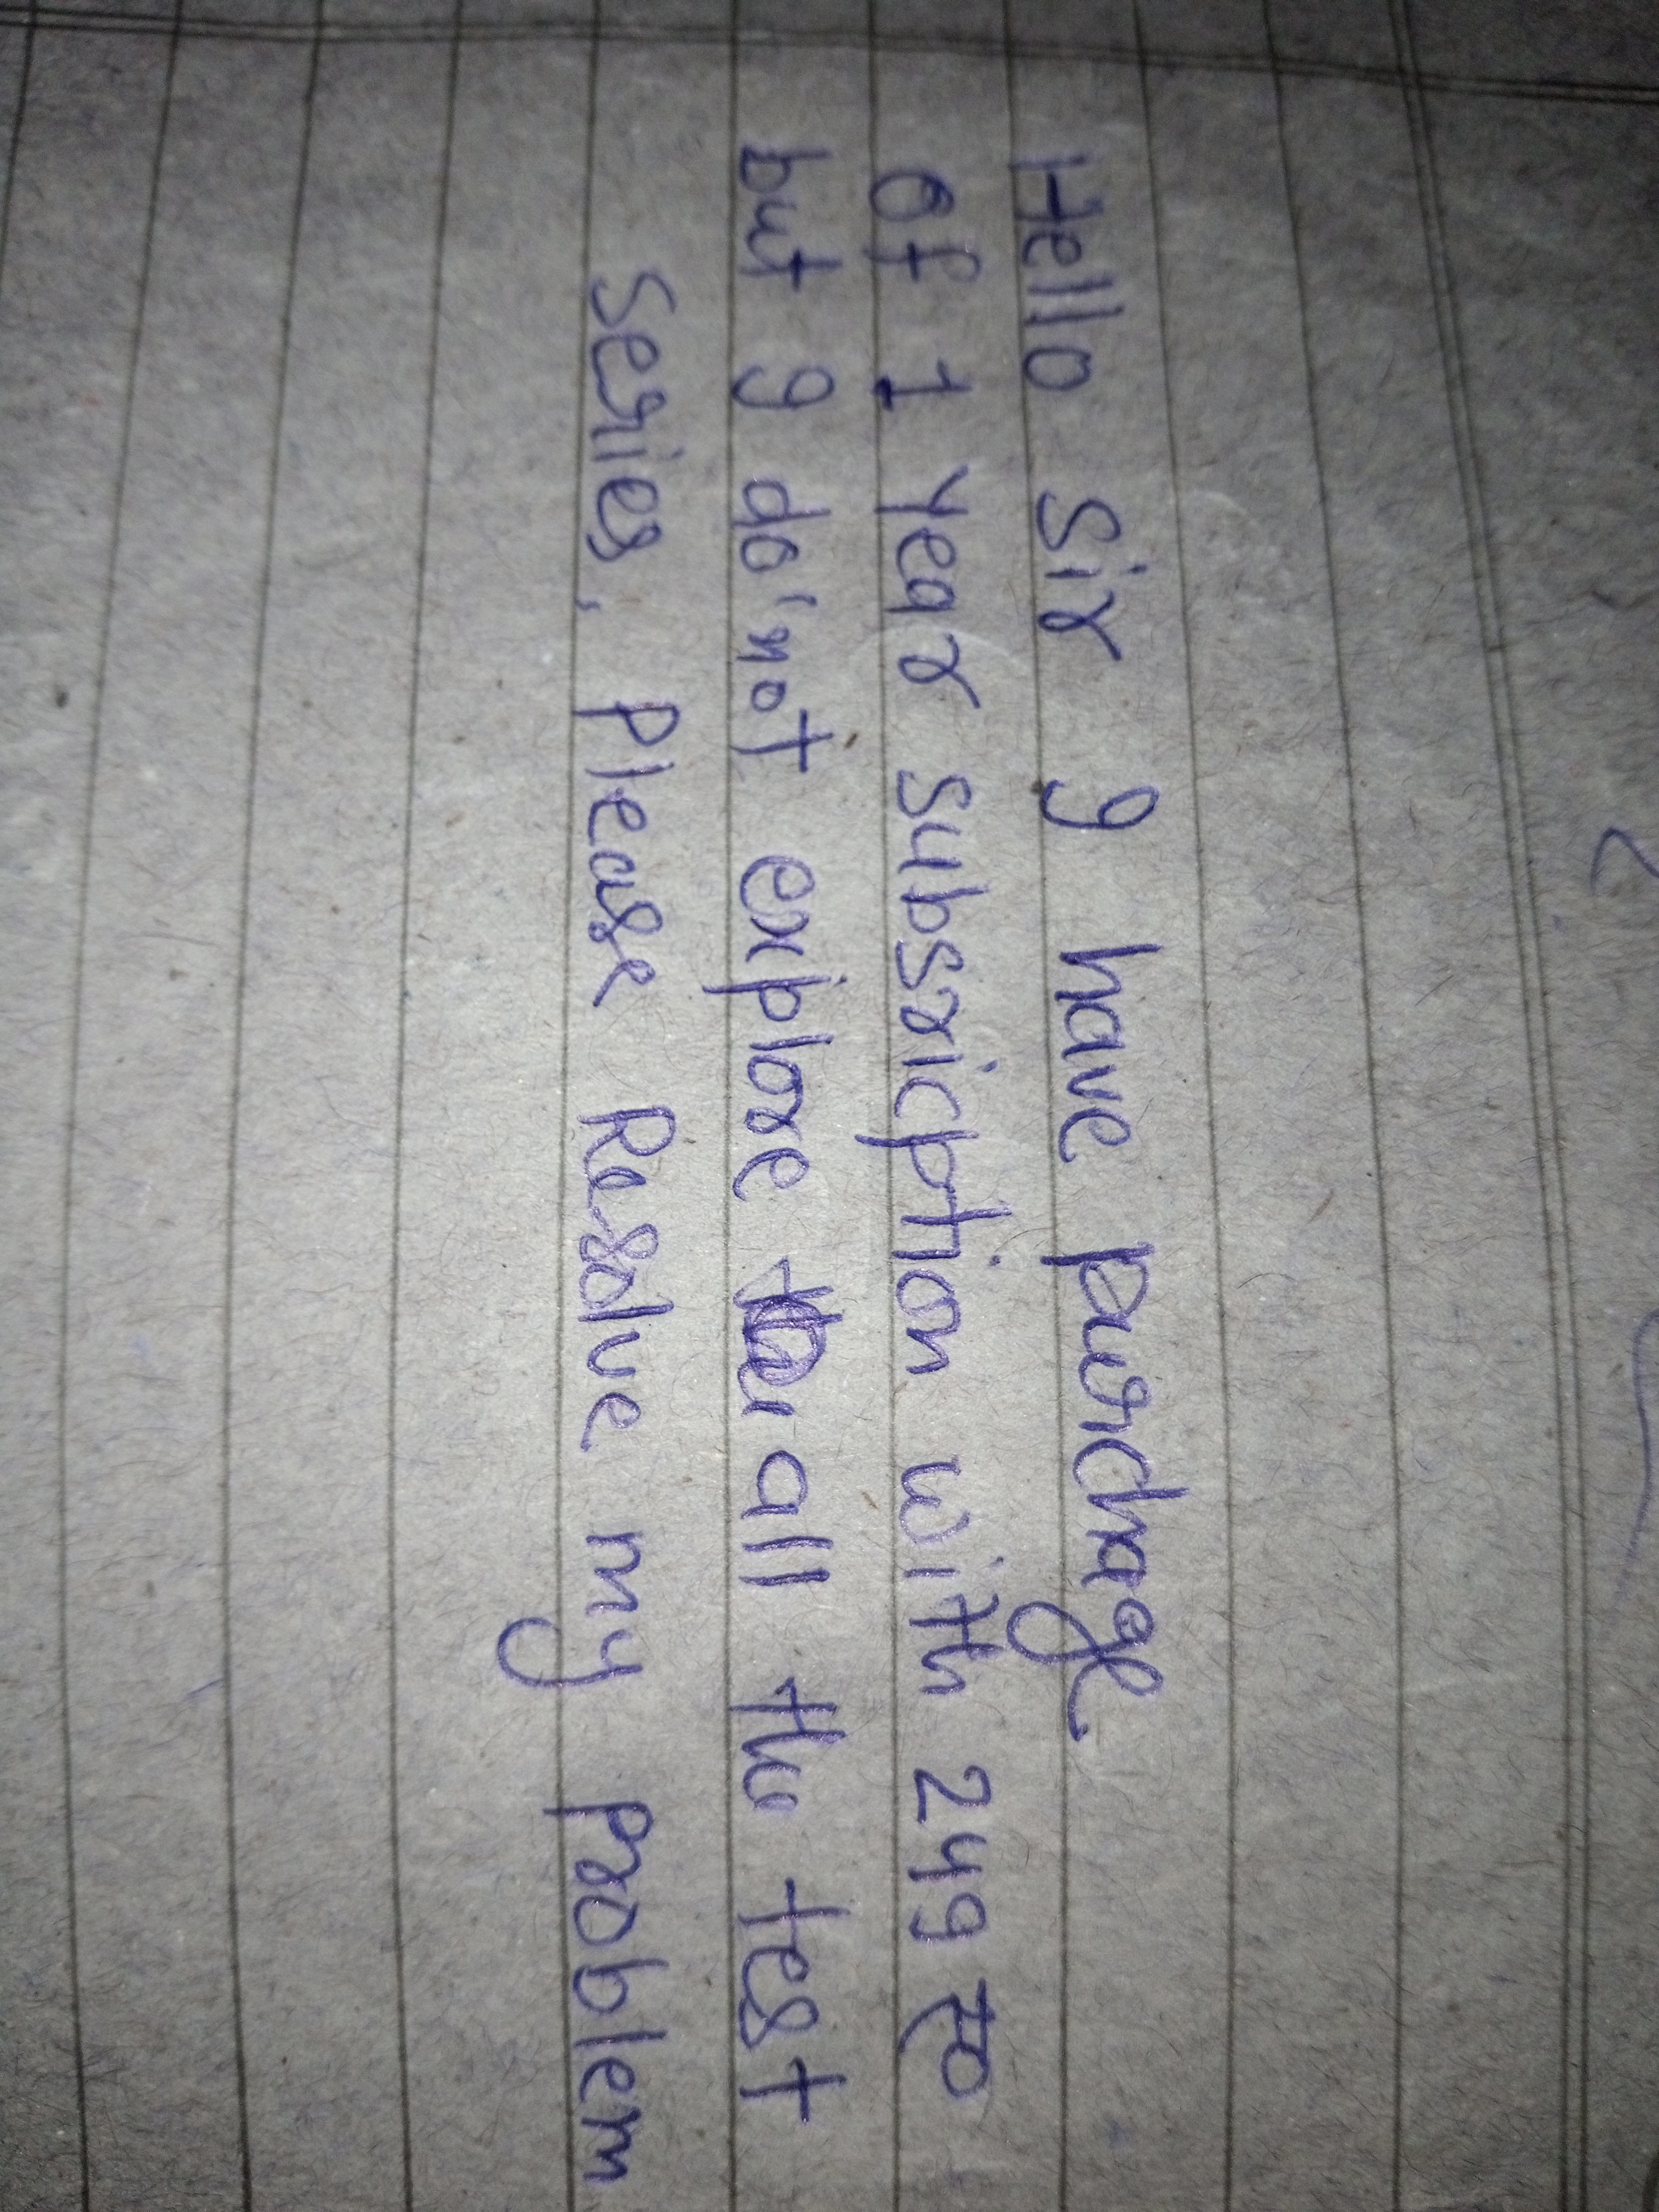 Hello Sir I have purchage
of 1 year subsricption with 249 रु०
but I do'not explore all the test
series, Please Resolve my problem